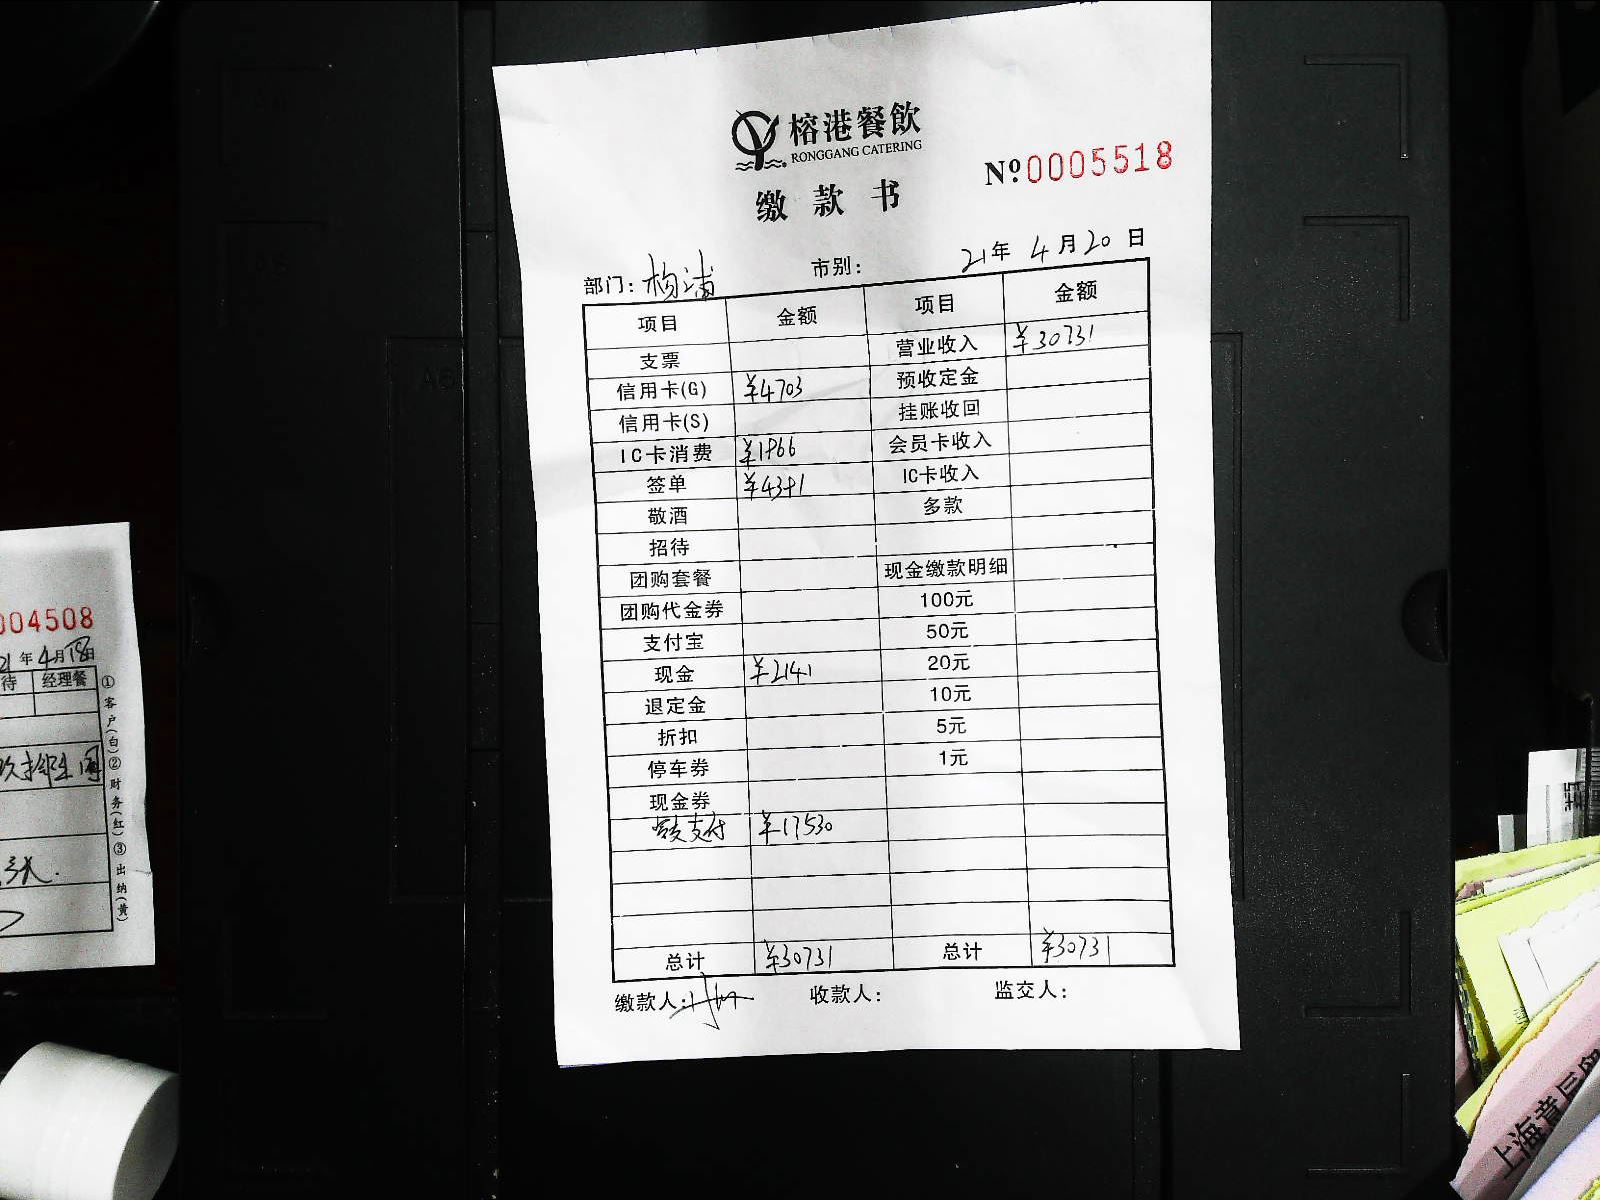 榕港餐飲
RONGGANG CATERING
缴款书
Nº0005518
部门: 杨浦 市别: 21年 4月20日
项目 金额 项目 金额
支票 营业收入 ¥30731
信用卡(G) ¥4703 预收定金
信用卡(S) 挂账收回
IC卡消费 ¥1966 会员卡收入
签单 ¥4391 IC卡收入
敬酒 多款
招待
团购套餐 现金缴款明细
团购代金券 100元
支付宝 50元
现金 ¥2141 20元
退定金 10元
折扣 5元
停车券 1元
现金券
支付 ¥17530
总计 ¥30731 总计 ¥30731
缴款人: 收款人: 监交人:
004508
21年4月18日
待 经理餐
①客户(白)②财务(红)③出纳(黄)
上海章